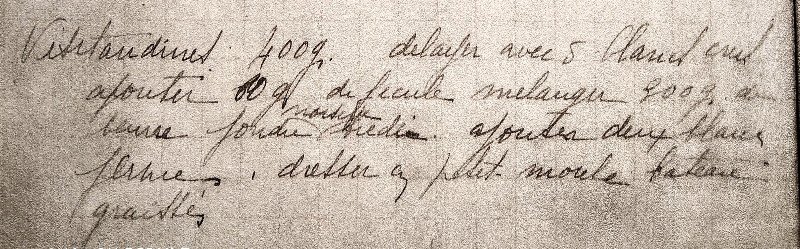 Visitandines. 400g. delayer avec 5 blancs crus
ajouter 80g de fecule melanger 300g de
noisette
beurre fondu tiède. ajouter deux blancs
fermes, dresser en petit moule bateau
graissés